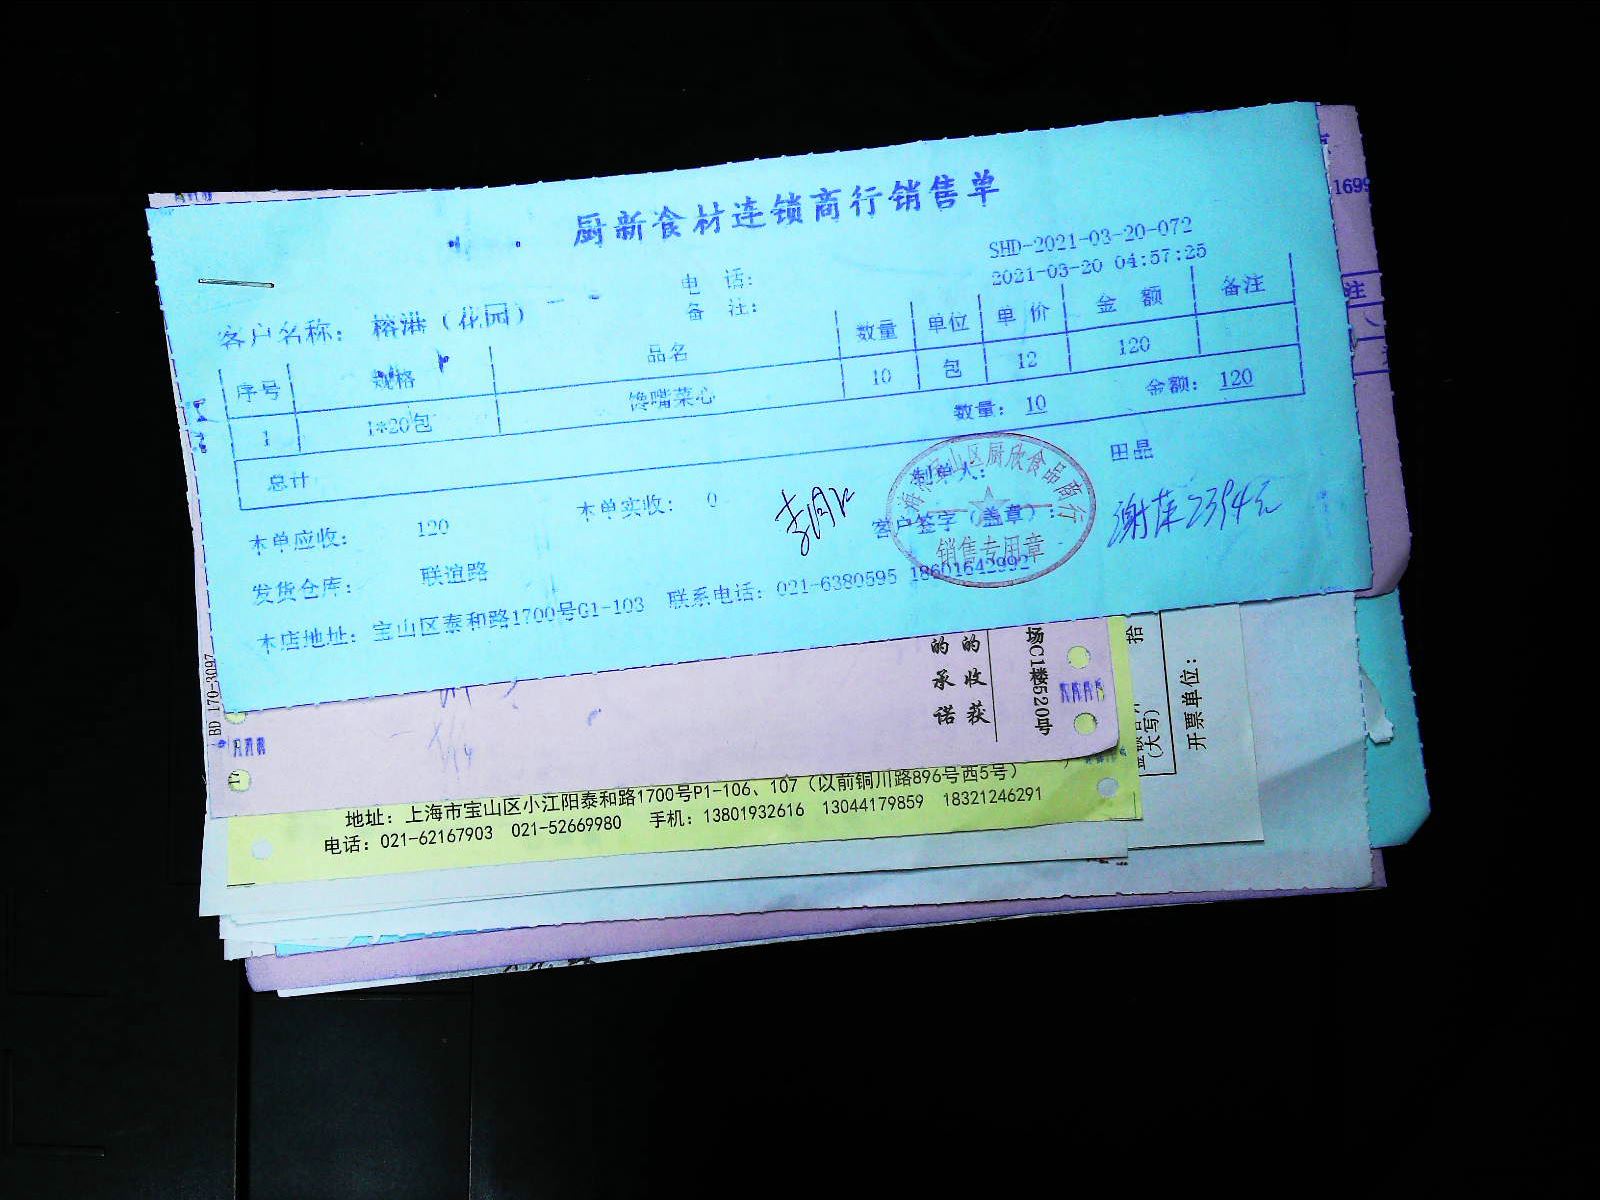 厨新食材连锁商行销售单
SHD-2021-03-20-072
2021-03-20 04:57:25
电 话:
备 注:
客户名称: 榕港（花园）
序号 规格 品名 数量 单位 单价 金额 备注
1 1*20包 馋嘴菜心 10 包 12 120
总计 数量: 10 金额: 120
本单应收: 120 本单实收: 0 制单人: 田晶
客户签字（盖章）:
2394元
发货仓库: 联谊路
本店地址: 宝山区泰和路1700号G1-103 联系电话: 021-6380595 18601642992
山区厨欣食品商行
销售专用章
1699
注
BD 170-3097
的承诺
的收获
场C1楼520号
拾
(大写)
开票单位:
地址: 上海市宝山区小江阳泰和路1700号P1-106、107（以前铜川路896号西5号）
电话: 021-62167903 021-52669980 手机: 13801932616 13044179859 18321246291